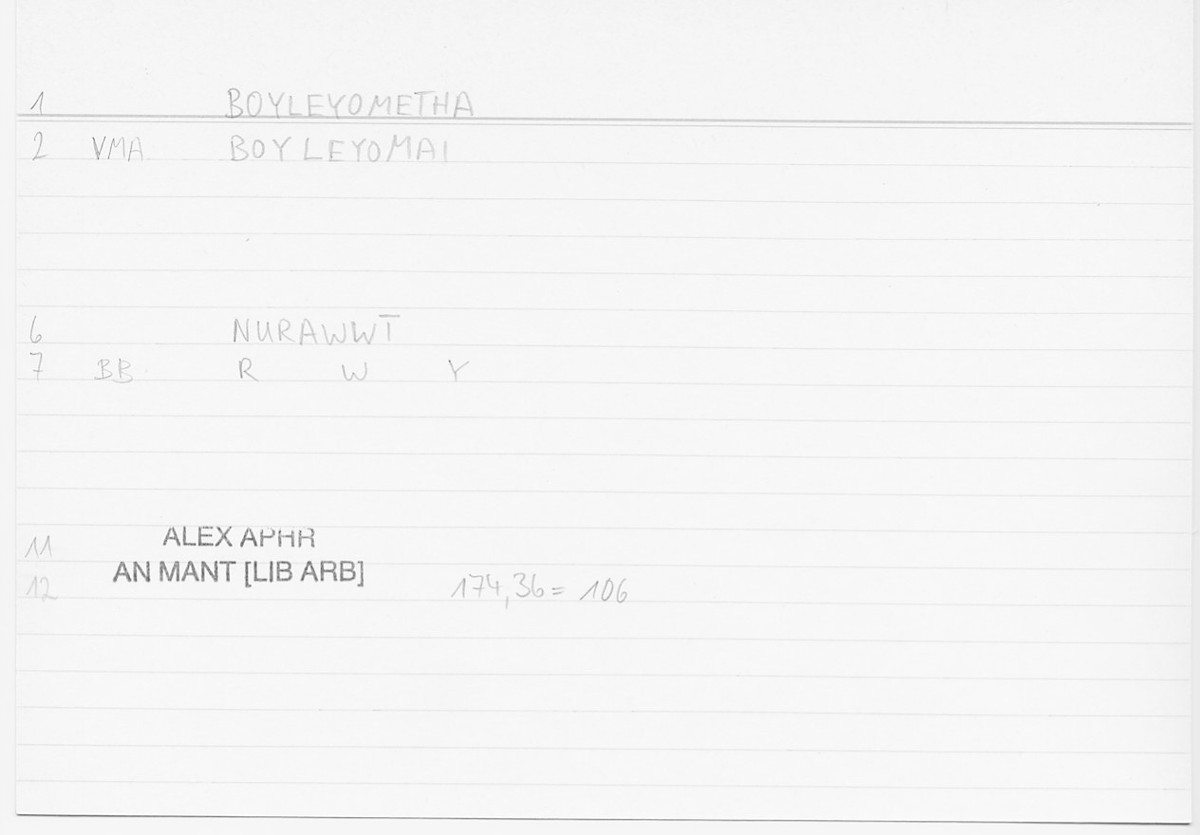 1 BOYLEYOMETHA
2 VMA BOYLEYOMAI
6 NURAWWT̄
7 BB R W Y
11 ALEX APHR
12 AN MANT [LIB ARB] 174,36 = 106